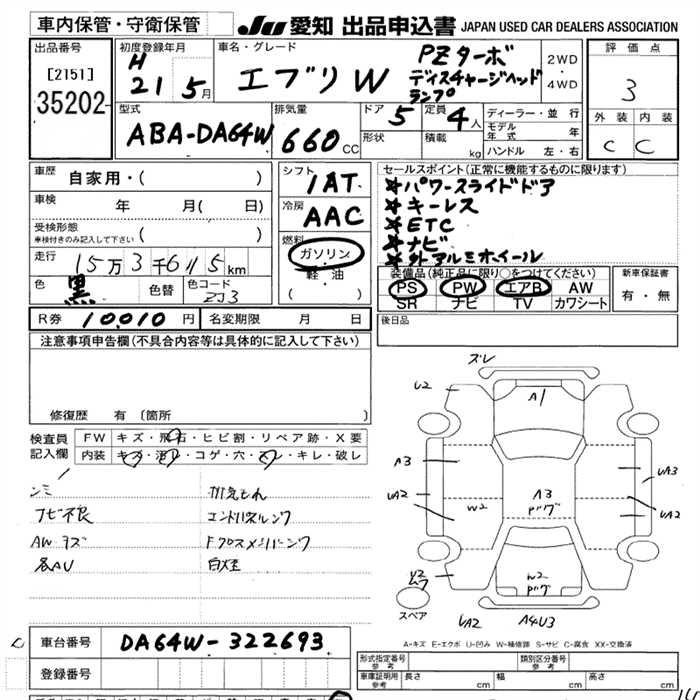 車内保管・守衛保管
JU 愛知 出品申込書 JAPAN USED CAR DEALERS ASSOCIATION
出品番号
[2151]
35202
初度登録年月
H
21 5月
車名・グレード
エブリW
PZターボ
ディスチャージヘッド
ランプ
2WD
・
4WD
評価点
3
外装 内装
C C
型式
ABA-DA64W
排気量
660CC
ドア 5
形状
定員 4人
積載 kg
ディーラー・並行
モデル年式 年
ハンドル 左・右
車歴
自家用・( )
車検 年 月( 日)
受検形態
車検付きのみ記入して下さい ( )
走行
15万3千6115km
色 黒 色替 色コード ZJ3
シフト
1AT
冷房
AAC
燃料
ガソリン
軽・油
( )
セールスポイント(正常に機能するものに限ります)
★パワースライドドア
★キーレス
★ETC
★ナビ
★外アルミホイール
装備品(純正品に限り○をつけてください)
PS PW エアB AW
SR ナビ TV カワシート
新車保証書
有・無
R券 10010円 名変期限 月 日
後日品
注意事項申告欄(不具合内容等は具体的に記入して下さい)
修復歴 有 〔箇所
検査員
記入欄
FW キズ・飛石・ヒビ割・リペア跡・X要
内装 キズ・汚レ・コゲ・穴・スレ・キレ・破レ
シミ
ナビ不良
AWキズ
各AU
ズレ
U2
A1
A3
UA2
W2
A3
UA3
UA2
W2
スペア
UA2
A4U3
A-キズ E-エクボ U-凹み W-補修跡 S-サビ C-腐食 XX-交換済
車台番号 DA64W-322693
登録番号
形式指定番号
参考
類別区分番号
参考
車庫証明用
参考
長さ cm 幅 cm 高さ cm